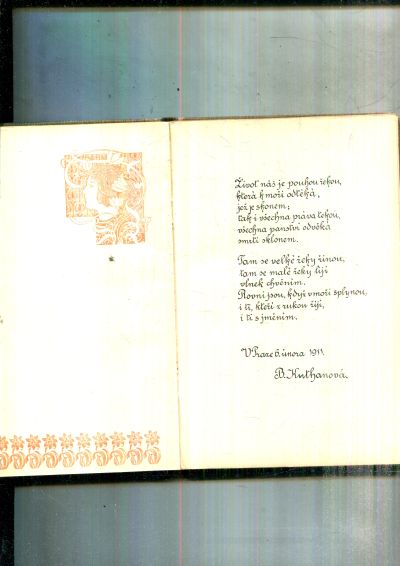 Život náš je pouhou řekou,
která k moři odtéká,
jež je skonem;
tak i všechna práva tekou,
všechna panství odvěká
smrti sklonem.
Tam se velké řeky řinou,
tam se malé řeky lijí
vlnek chvěním.
Rovni jsou, když v moři splynou,
i ti, kteří z rukou žijí,
i ti s jměním.
V Praze 6. února 1911.
B. Kuthanová.